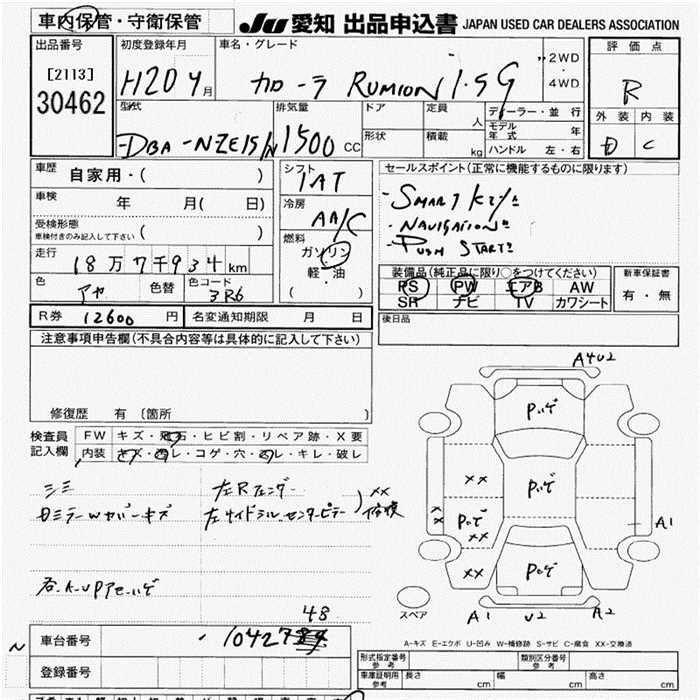 車内保管・守衛保管
JU 愛知 出品申込書 JAPAN USED CAR DEALERS ASSOCIATION
出品番号
[2113]
30462
初度登録年月
H20 4月
車名・グレード
カローラ RUMION 1.5G
2WD
・
4WD
評価点
R
外装 内装
D C
型式
DBA-NZE151N
排気量
1500 CC
ドア
形状
定員
人
積載
kg
ディーラー・並行
モデル年式 年
ハンドル 左・右
車歴 自家用・( )
車検 年 月( 日)
受検形態
車検付きのみ記入して下さい ( )
走行 18万7千934km
色 色替 色コード
3R6
シフト
IAT
冷房
AA/C
燃料
ガソリン
軽・油
( )
セールスポイント(正常に機能するものに限ります)
・SMART キー
・NAVIGATION
・PUSH START
装備品(純正品に限り○をつけてください)
PS PW エアB AW
SR ナビ TV カワシート
新車保証書
有・無
R券 12600 円 名変通知期限 月 日
後日品
注意事項申告欄(不具合内容等は具体的に記入して下さい)
修復歴 有 〔箇所 〕
検査員
記入欄
FW キズ・飛石・ヒビ割・リペア跡・X要
内装 キズ・汚レ・コゲ・穴・スレ・キレ・破レ
シミ
左Rフェンダー
左サイドシル、センターピラー
XX
修復
A4U2
Pハゲ
XX
Pハゲ
XX
Pハゲ
XX
A1
XX
Pハゲ
スペア
A1 U2 A2
A-キズ E-エクボ U-凹み W-補修跡 S-サビ C-腐食 XX-交換済
48
車台番号 -10427
登録番号
形式指定番号
参考
類別区分番号
参考
車庫証明用
参考
長さ 幅 高さ
cm cm cm